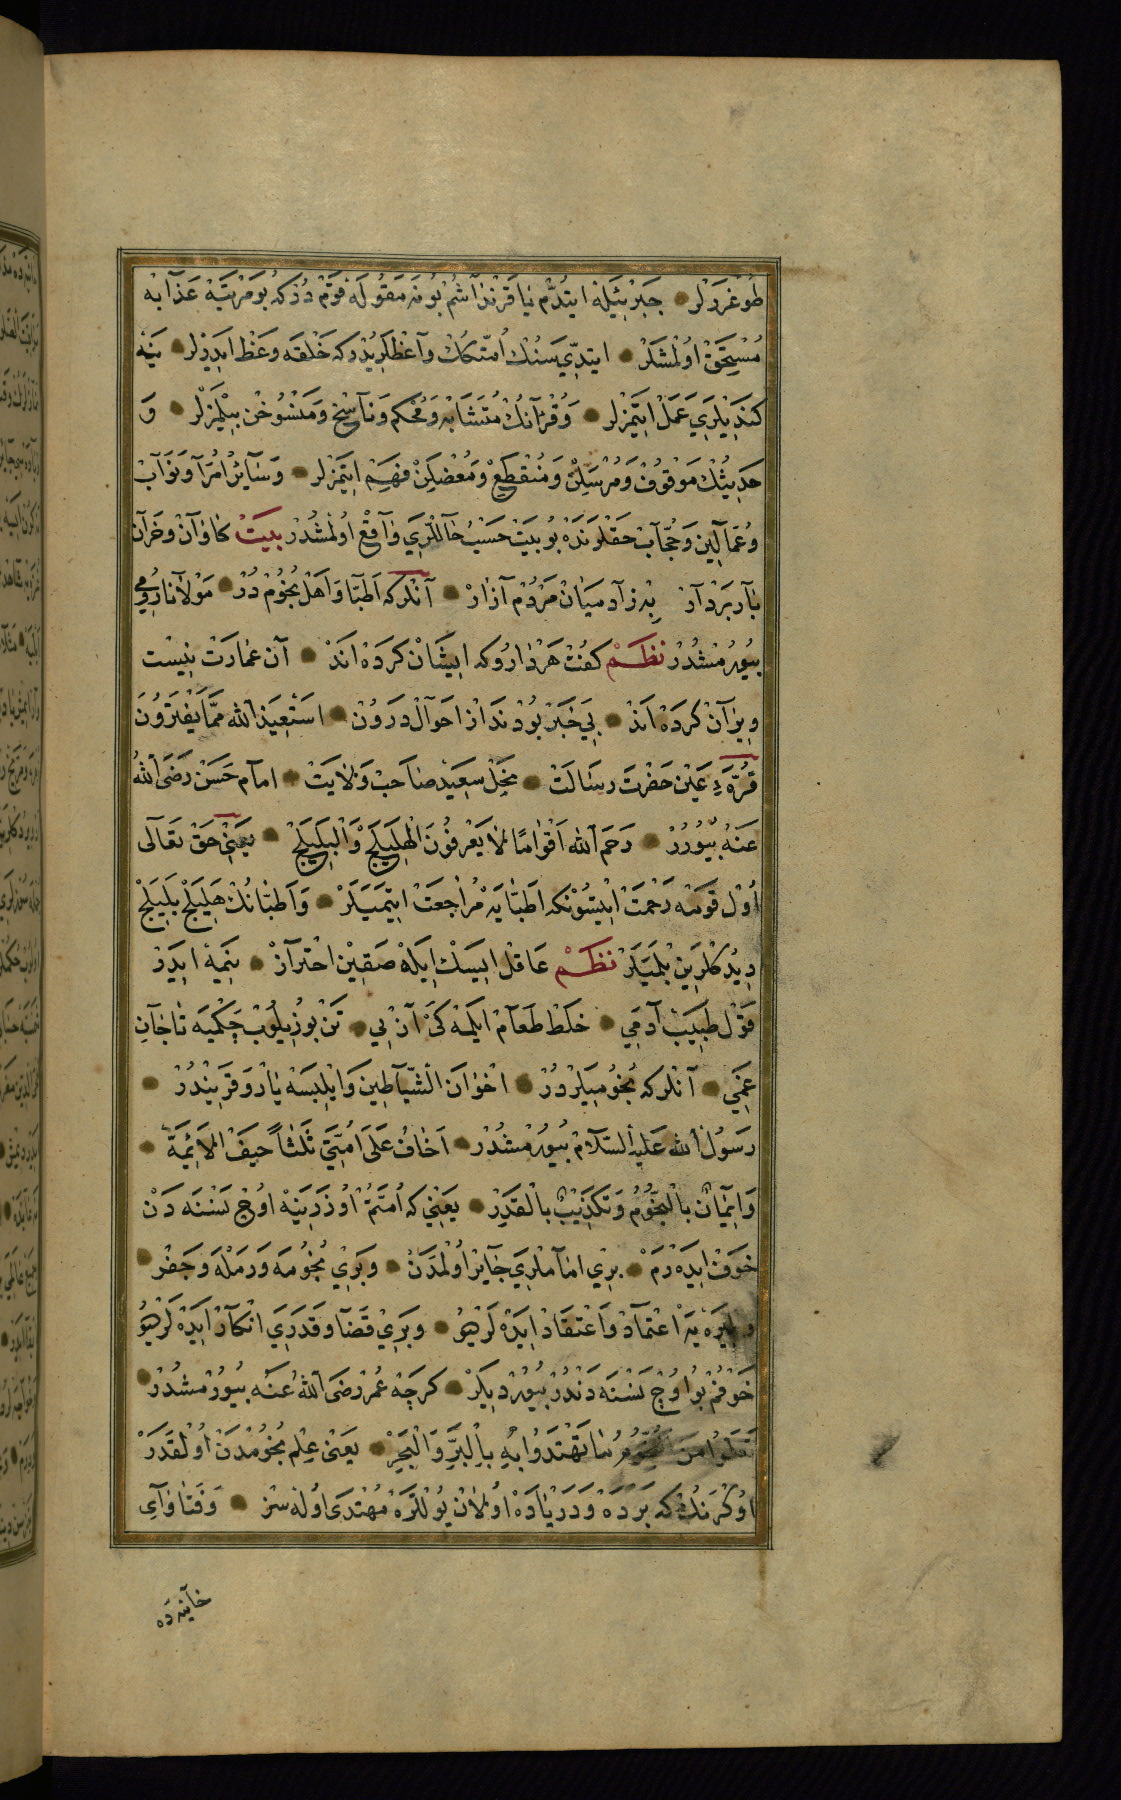 طوغررلر جبرئیله ایتدم یا قرنداشم بونه مقوله قومدر که بو مرتبه عذابه
مستحق اولمشلر ایتدی سنك امتكك واعظلریدر که خلقه وعظ ایدرلر ینه
كندیلری عمل ایتمزلر وقرآنك متشابه ومحكم وناسخ ومنسوخن بیلمزلر و
حدیثك موقوف ومرسلن ومنقطع ومعضلن فهم ایتمزلر وسائر امرا ونواب
وعمالین وحجاب حقلرنده بو بیت حسب حاللری واقع اولمشدر بیت كاوان وخران
بار بردار به ز آدمیان مردم آزار آنلركه اطبا واهل نجومدر مولانا رومی
بیورمشدر نظم كفت هر دارو که ایشان کرده اند آن عمارت نیست
ویران کرده اند بی خبر بودند از احوال درون استعیذ الله مما یفترون
قره عین حضرت رسالت نجل سعید صاحب ولایت امام حسن رضی الله
عنه بیورر رحم الله اقواما لا یعرفون الهلیلج والبلیلج یعنی حق تعالی
اول قومه رحمت ایلیسونكه اطبایه مراجعت ایتمیلر واطبانك هلیلج بلیلج
دیدكلرین بلمیلر نظم عاقل ایسك ایله صقین احتراز نیمه ایدر
قول طبیب آدمی خلط طعام ایلمه كی آن بی تن بوزیلوب چكمیه تا جان
غمی آنلركه نجومیلردر اخوان الشیاطین وابلیسه یار وقریندر
رسول الله علیه السلام بیورمشدر اخاف علی امتی ثلثا حیف الائمة
وایمان بالنجوم وتكذیب بالقدر یعنی كه امتم اوزرینه اوچ نسنه دن
خوف ایده رم بری اماملری جایر اولمدن وبری نجومه ورمله وجفر
وغیره یه اعتماد واعتقاد ایده لر هو وبری قضا وقدری انكار ایده لر هو
خوفم بو اوچ نسنه دندر بیوردیلر كرچه عمر رضی الله عنه بیورمشدر
تعلموا من النجوم ما تهتدوا به بالبر والبحر یعنی علم نجومدن اولقدر
اوكرنك كه برده ودریاده اولان یوللره مهتدی اوله سز وفتاوای
خانیه ده